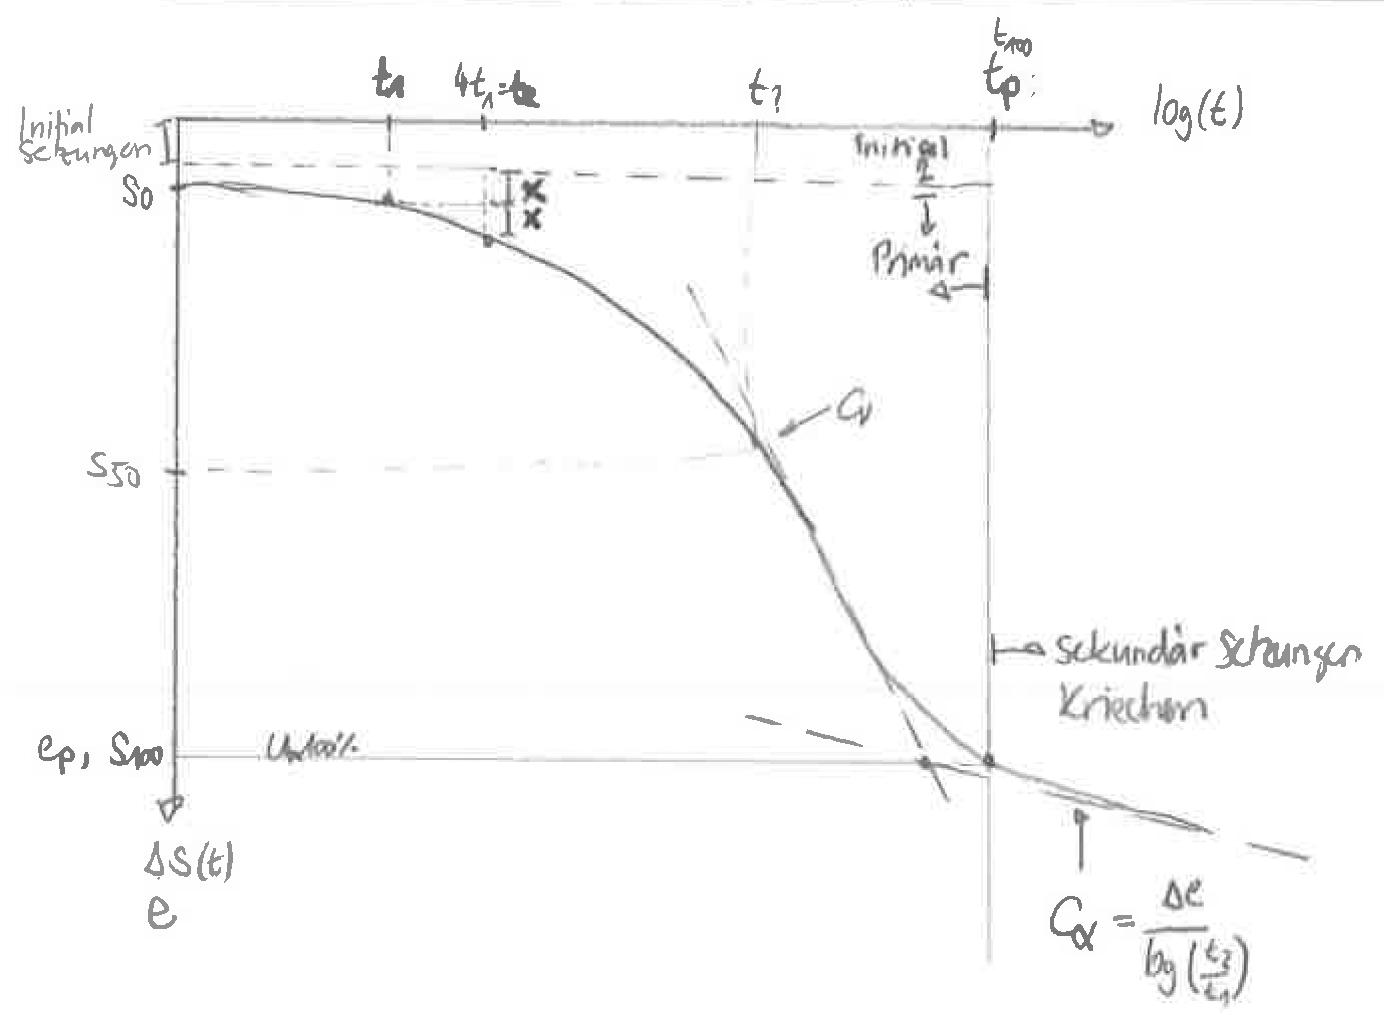 t100
t1
4t1=t2
t?
tp:
log(t)
Initial
Setzungen
Initial
S0
x
x
Primär
Cv
S50
Sekundär Setzungen
Kriechen
ep, S100
U=100%
ΔS(t)
e
Cα = Δe
log(t2/t1)